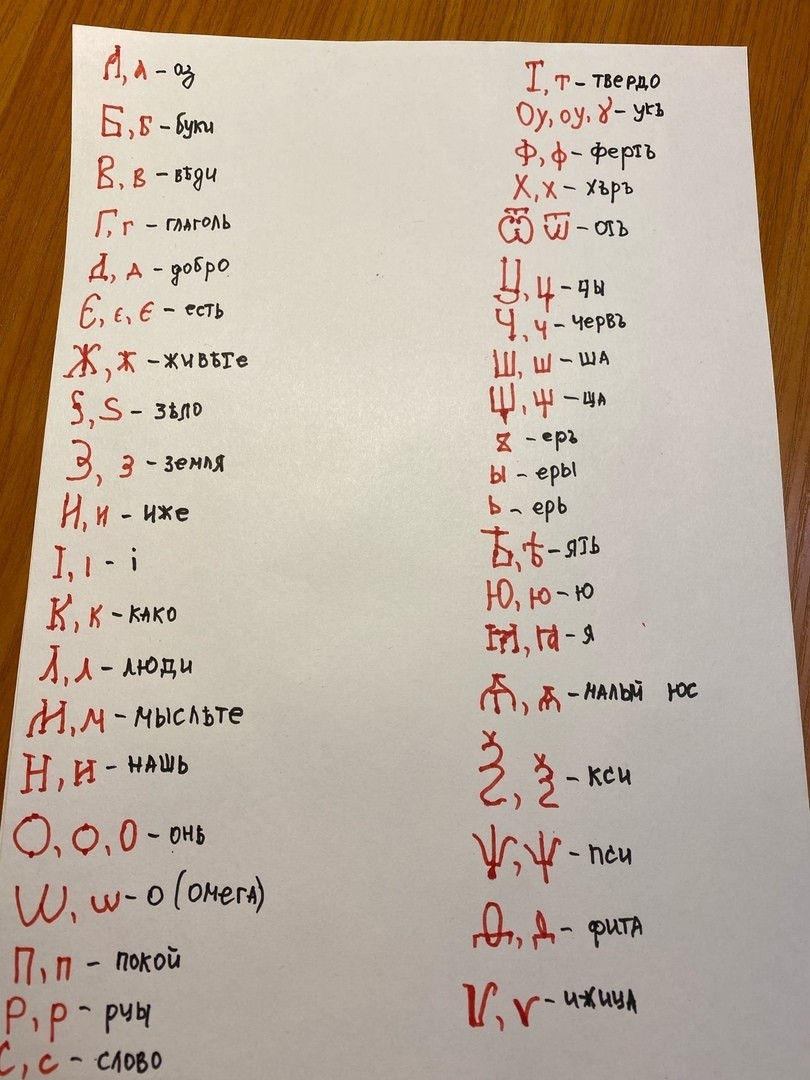 А, а - аз
Б, б - буки
В, в - вѣди
Г, г - глаголь
Д, д - добро
Є, є, Є - есть
Ж, ж - живѣте
Ѕ, Ѕ - зѣло
З, з - земля
И, и - иже
І, і - і
К, к - како
Л, л - люди
М, м - мыслѣте
Н, н - нашь
О, о, О - онь
Ѡ, ѡ - о (омега)
П, п - покой
Р, р - рцы
С, с - слово
Т, т - твердо
Оу, оу, ꙋ - укъ
Ф, ф - фертъ
Х, х - хъръ
Ѿ ѿ - отъ
Ц, ц - цы
Ч, ч - червъ
Ш, ш - ша
Щ, щ - ща
ъ - еръ
ы - еры
ь - ерь
Ѣ, ѣ - ять
Ю, ю - ю
Ꙗ, ꙗ - я
Ѧ, ѧ - малый юс
Ѯ, ѯ - кси
Ѱ, ѱ - пси
Ѳ, ѳ - фита
Ѵ, ѵ - ижица